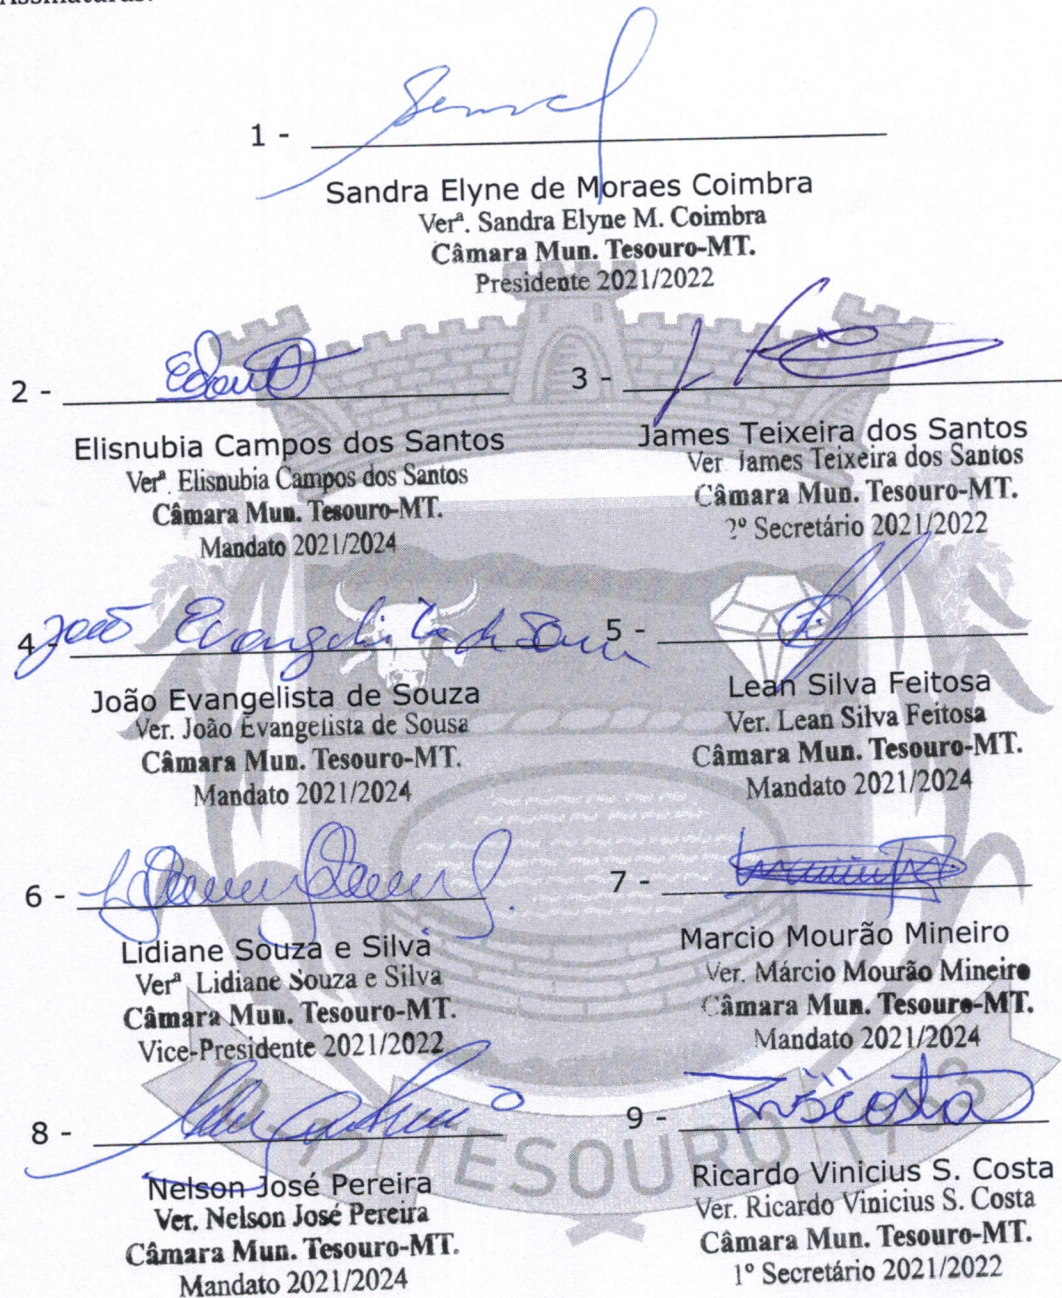 Assinaturas:
1 -
Sandra Elyne de Moraes Coimbra
Verª. Sandra Elyne M. Coimbra
Câmara Mun. Tesouro-MT.
Presidente 2021/2022
2 -
Elisnubia Campos dos Santos
Verª. Elisnubia Campos dos Santos
Câmara Mun. Tesouro-MT.
Mandato 2021/2024
3 -
James Teixeira dos Santos
Ver. James Teixeira dos Santos
Câmara Mun. Tesouro-MT.
2º Secretário 2021/2022
4 - João Evangelista de Sousa
João Evangelista de Souza
Ver. João Evangelista de Sousa
Câmara Mun. Tesouro-MT.
Mandato 2021/2024
5 -
Lean Silva Feitosa
Ver. Lean Silva Feitosa
Câmara Mun. Tesouro-MT.
Mandato 2021/2024
6 -
Lidiane Souza e Silva
Verª Lidiane Souza e Silva
Câmara Mun. Tesouro-MT.
Vice-Presidente 2021/2022
7 -
Marcio Mourão Mineiro
Ver. Márcio Mourão Mineiro
Câmara Mun. Tesouro-MT.
Mandato 2021/2024
8 -
Nelson José Pereira
Ver. Nelson José Pereira
Câmara Mun. Tesouro-MT.
Mandato 2021/2024
9 -
Ricardo Vinicius S. Costa
Ver. Ricardo Vinicius S. Costa
Câmara Mun. Tesouro-MT.
1º Secretário 2021/2022
TESOURO